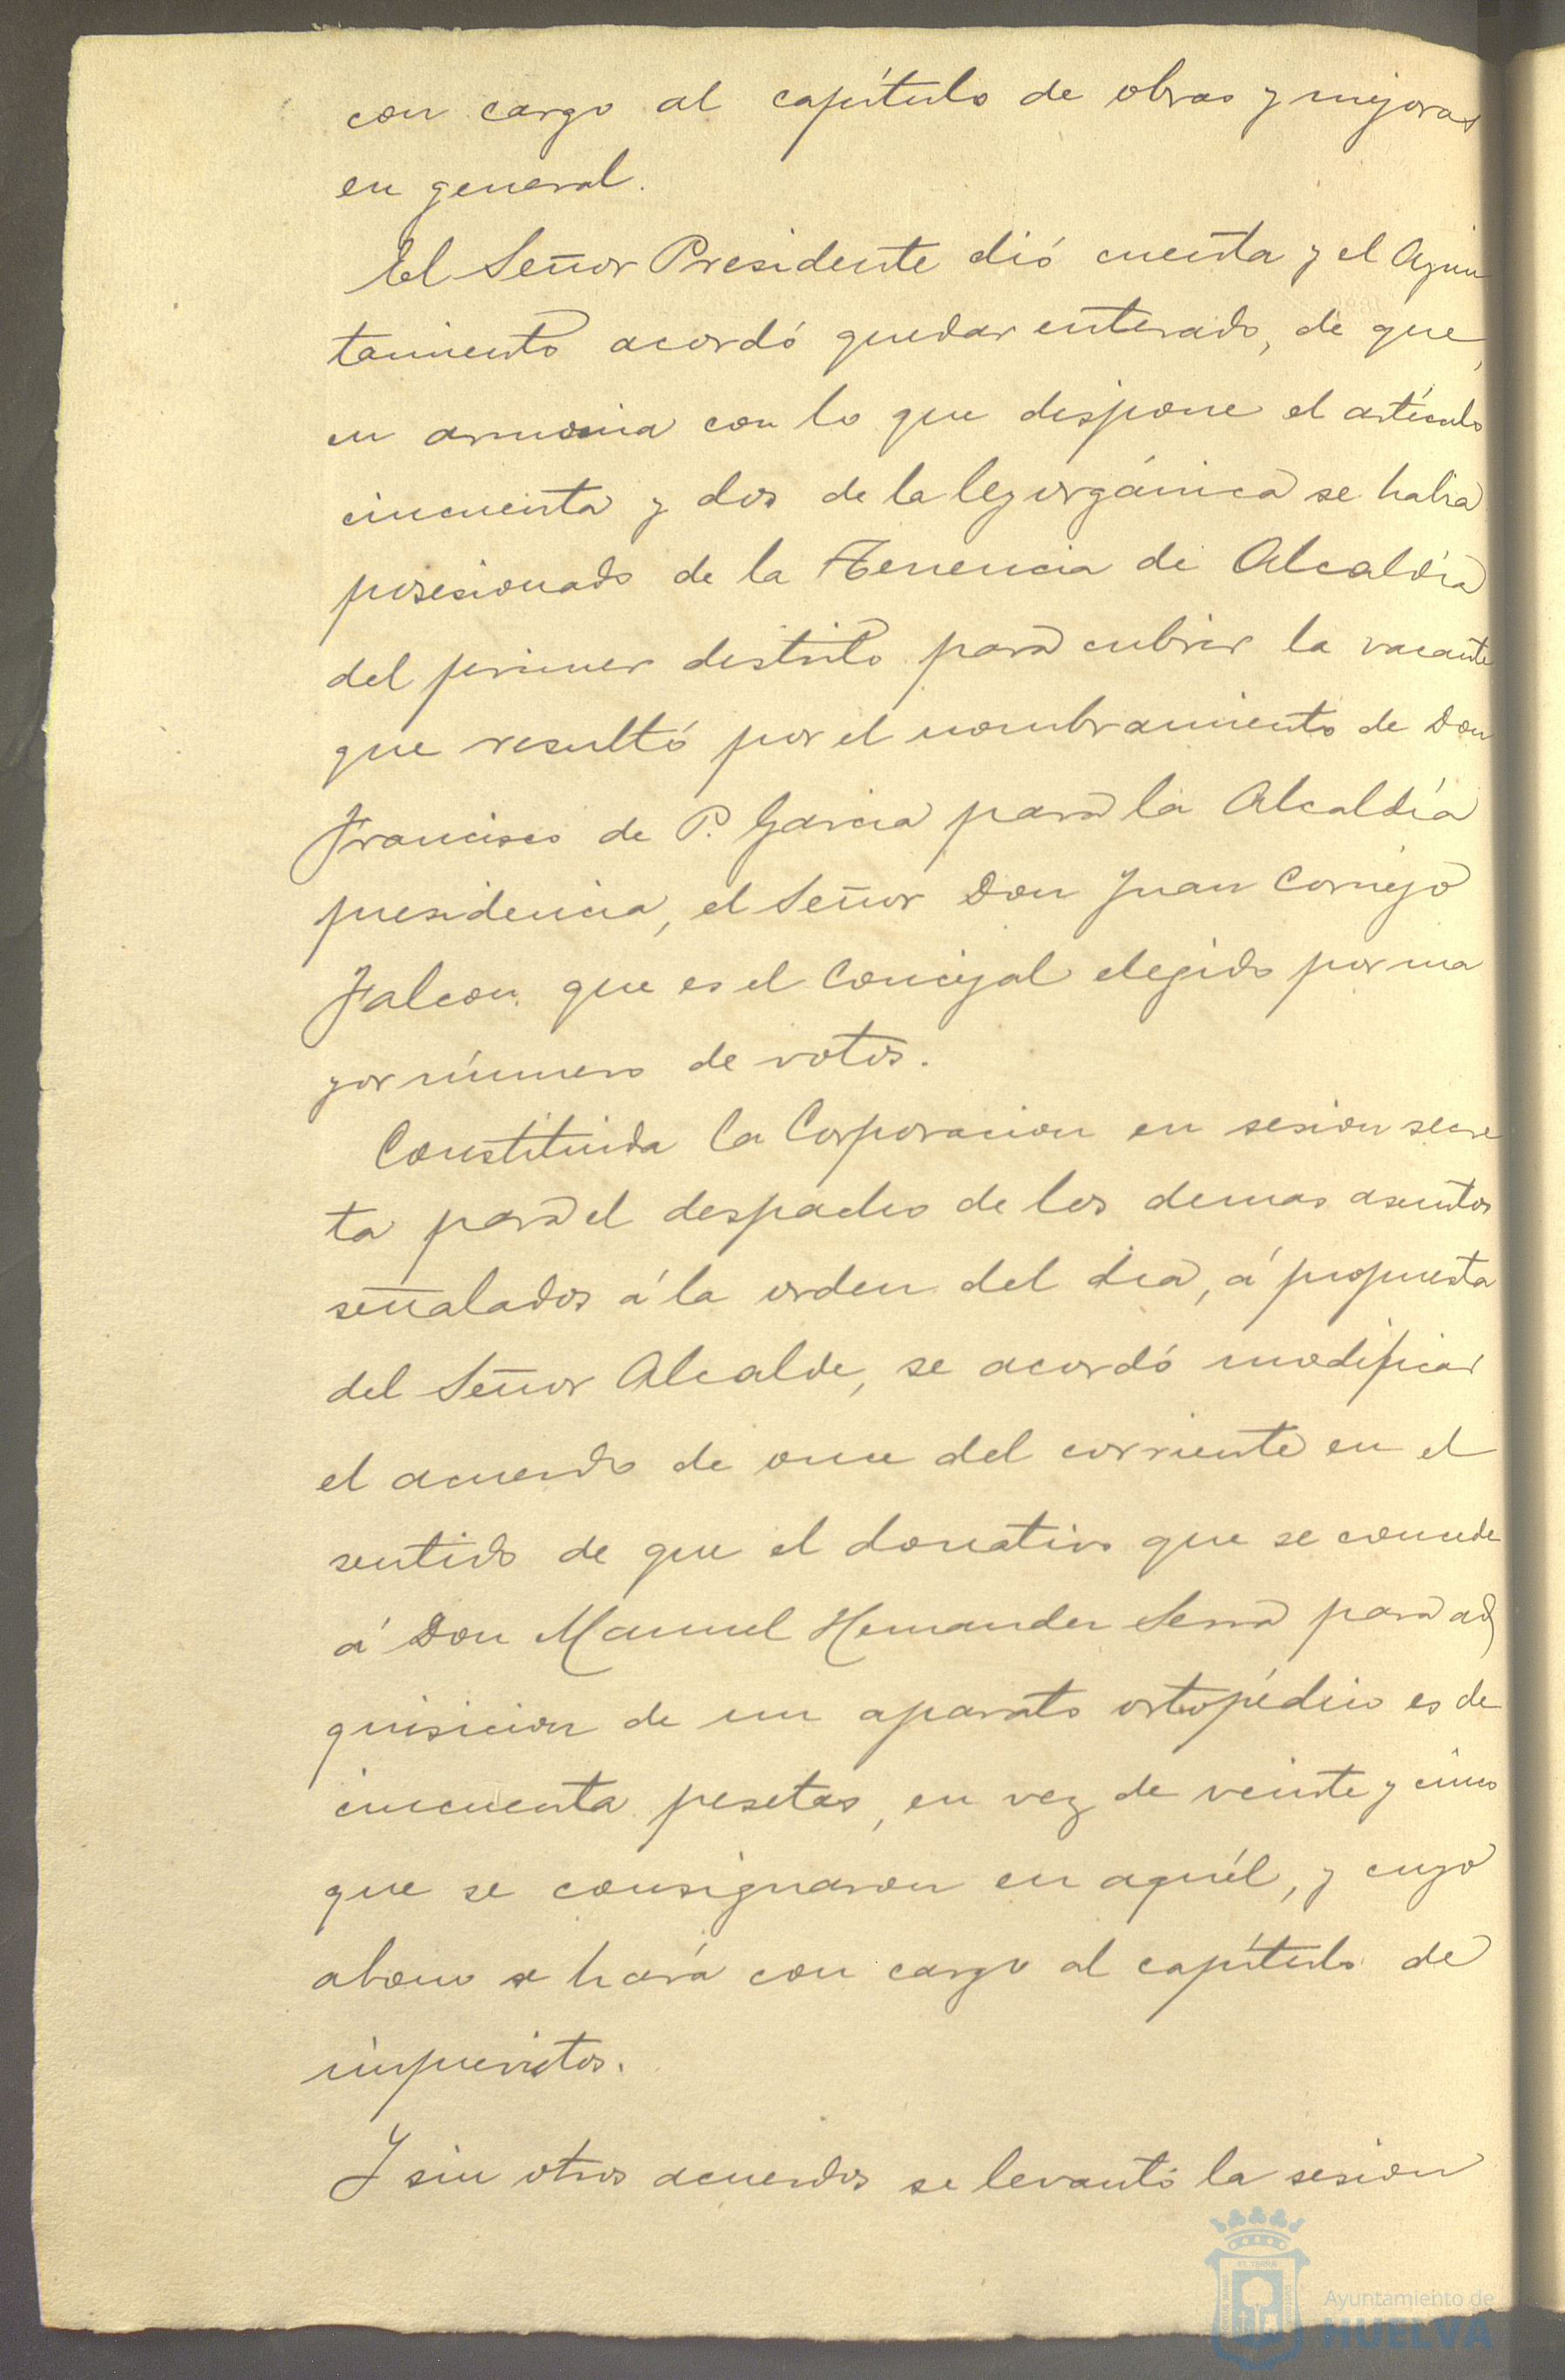 con cargo al capítulo de obras y mejoras
en general.
El Señor Presidente dió cuenta y el Ayun
tamiento acordó quedar enterado, de que,
en armonia con lo que dispone el artículo
cincuenta y dos de la ley orgánica se habia
posesionado de la Tenencia de Alcaldía
del primer distrito para cubrir la vacante
que resultó por el nombramiento de Don
Francisco de P. Garcia para la Alcaldía
presidencia, el Señor Don Juan Cornejo
Falcon que es el Concejal elegido por ma
yor número de votos.
Constituida la Corporacion en sesion secre
ta para el despacho de los demas asuntos
señalados á la orden del dia, á propuesta
del Señor Alcalde, se acordó modificar
el acuerdo de once del corriente en el
sentido de que el donativo que se concede
á Don Manuel Hernandez Serra para ad
quisicion de un aparato ortopédico es de
cincuenta pesetas, en vez de veinte y cinco
que se consignaron en aquél, y cuyo
abono se hará con cargo al capítulo de
imprevistos.
Y sin otros acuerdos se levantó la sesion
Ayuntamiento de
HUELVA